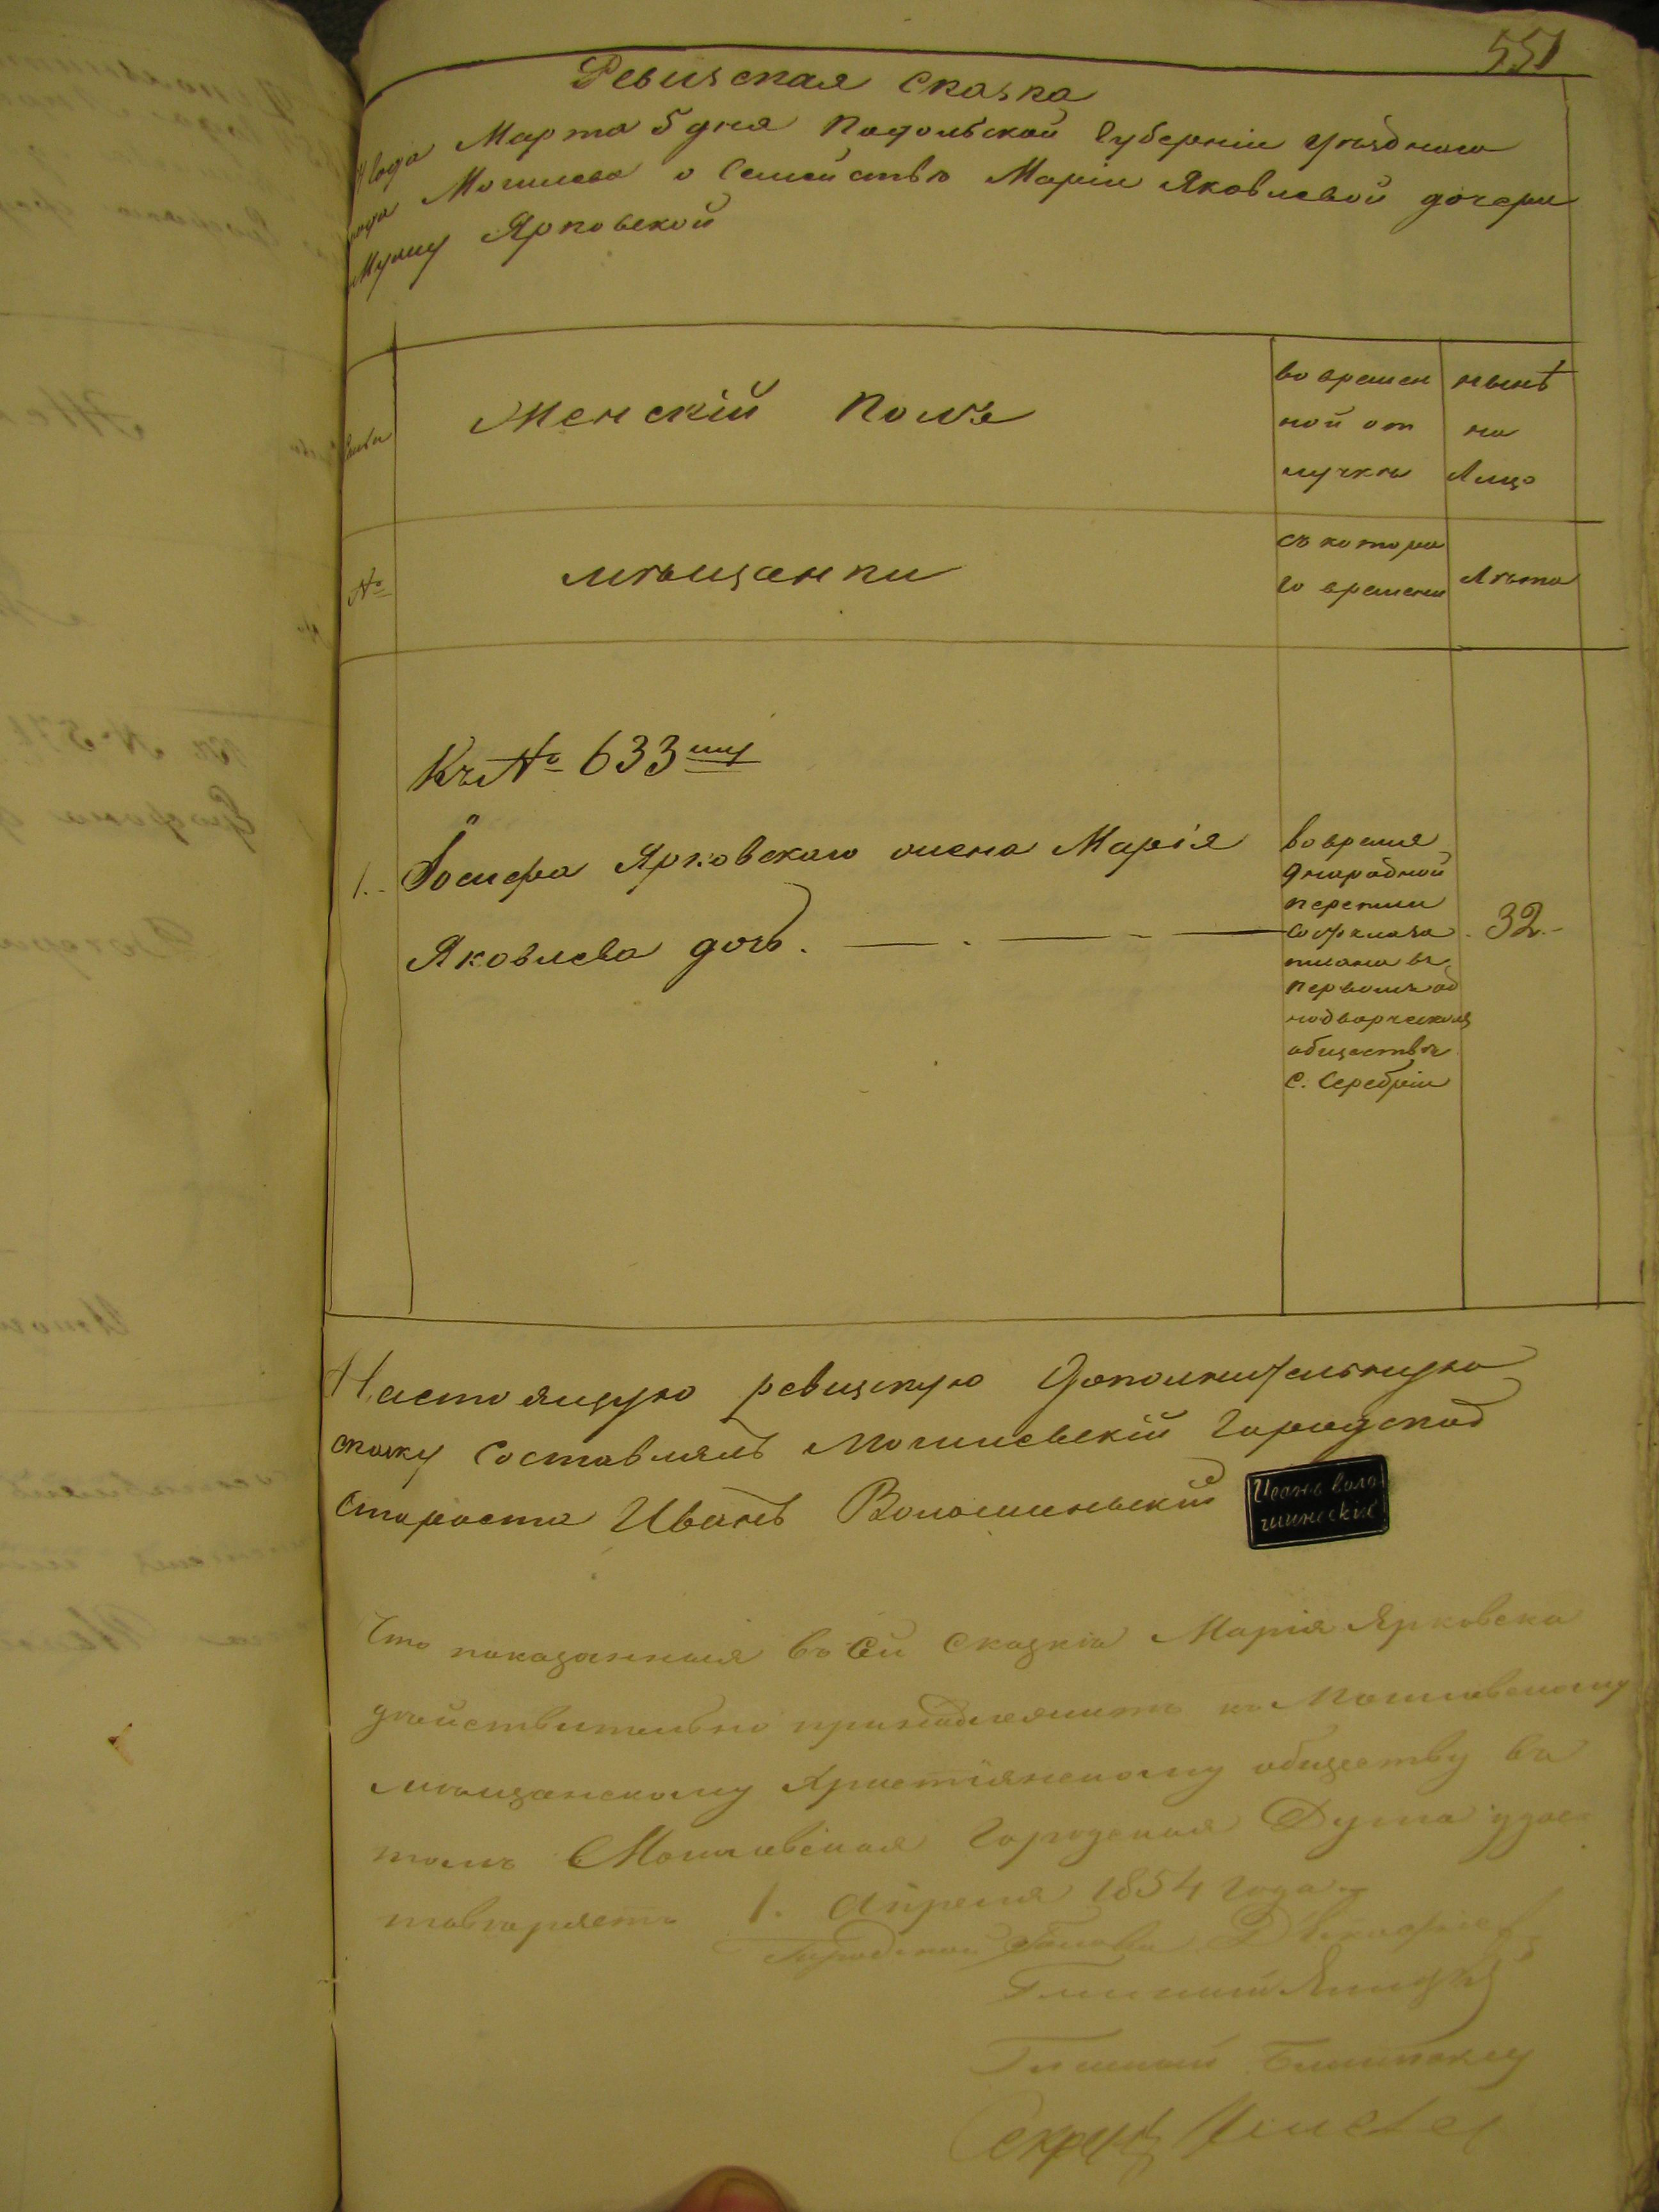 551
Ревизская сказка
года Марта 5 дня Подольской Губерніи уѣзднаго
рода Могилева о Семействѣ Маріи Яковлевой дочери
мужу Ярковской
Женскій Полъ
во времен
ной от
лучкѣ
нынѣ
на
лицо
№
мѣщанки
съ котора
го времени
Лѣта
Къ № 633му
1.
Іосифа Ярковскаго жена Марія
Яковлева дочь.
во время
9 народной
переписи
писана въ
первомъ од
нодворческомъ
обществѣ
С. Серебріи
32.
Настоящую ревизкую дополнительную
скаску Составлялъ Могилевскій Городской
Староста Иванъ Волошиньскій
Иванъ воло
шинскій
Что показанная въ сей Сказкѣ Марія Ярковска
дѣйствительно принадлежитъ къ Могилевскому
мѣщанскому Христіянскому обществу въ
томъ Могилевская Городская Дума удос
товѣряетъ 1. Апреля 1854 года
Городской Голова
Гласный
Гласный
Секрет